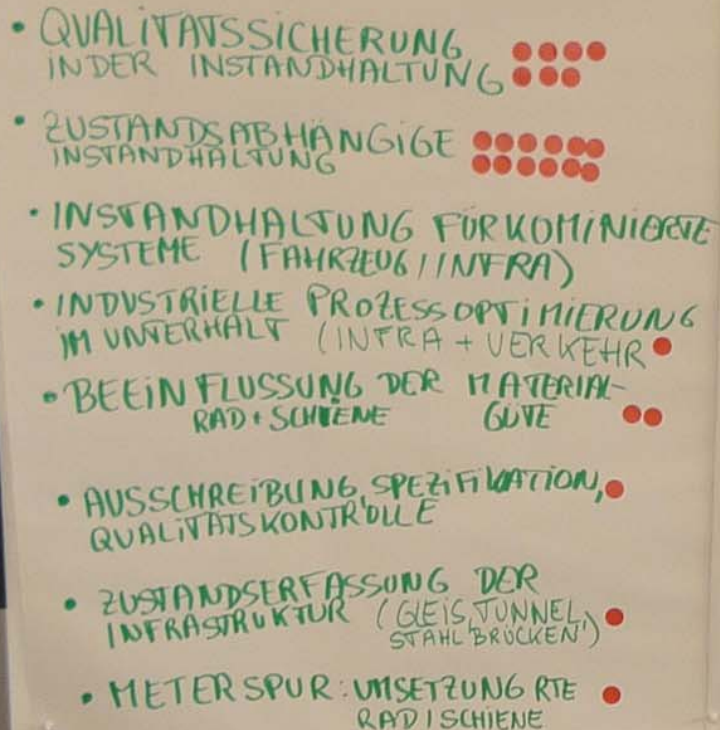 • QUALITÄTSSICHERUNG
IN DER INSTANDHALTUNG
• ZUSTANDSABHÄNGIGE
INSTANDHALTUNG
• INSTANDHALTUNG FÜR KOMINIERTE
SYSTEME (FAHRZEUG / INFRA)
• INDUSTRIELLE PROZESSOPTIMIERUNG
IM UNTERHALT (INFRA + VERKEHR
• BEEINFLUSSUNG DER MATERIAL-
RAD + SCHIENE GÜTE
• AUSSCHREIBUNG, SPEZIFIKATION,
QUALITÄTSKONTROLLE
• ZUSTANDSERFASSUNG DER
INFRASTRUKTUR (GLEIS, TUNNEL,
STAHLBRÜCKEN)
• METERSPUR: UMSETZUNG RTE
RAD / SCHIENE